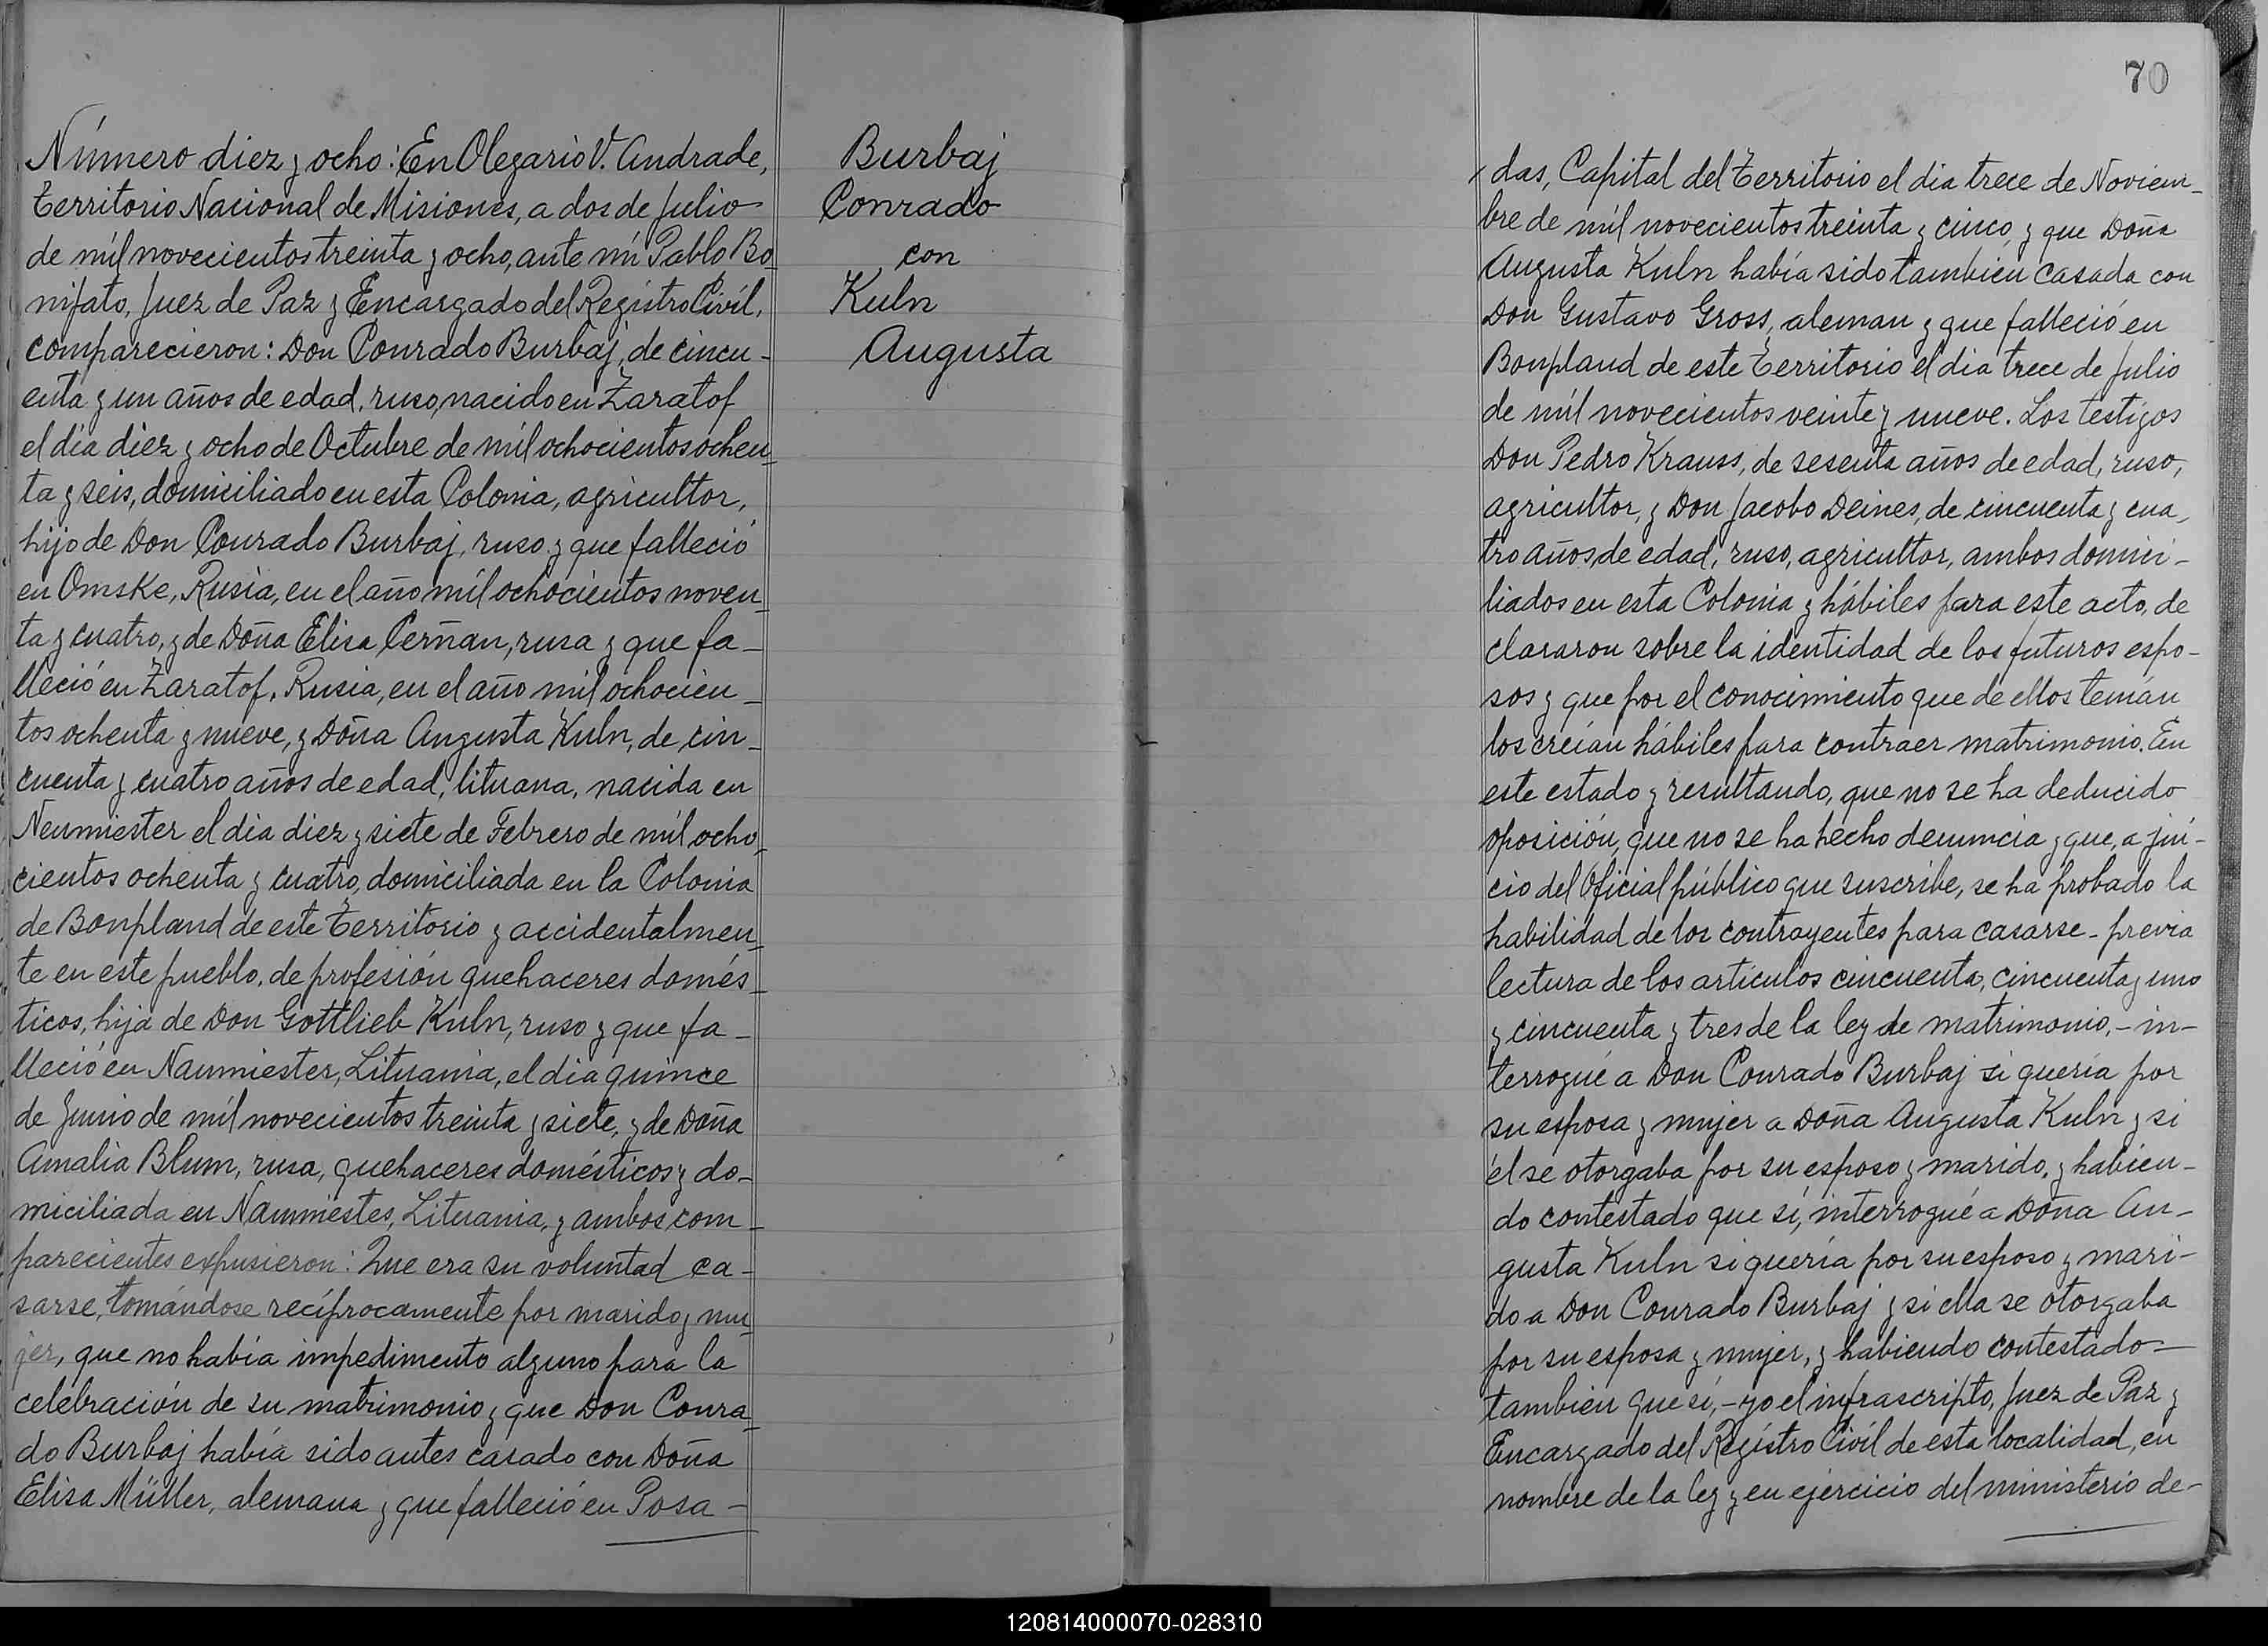 Número diez y ocho: En Olegario V. Andrade,
Territorio Nacional de Misiones, a dos de Julio
de mil novecientos treinta y ocho, ante mí Pablo Bo_
nifato, Juez de Paz y Encargado del Registro Civil,
comparecieron: Don Conrado Burbaj, de cincu-
enta y un años de edad, ruso, nacido en Zaratof
el día diez y ocho de Octubre de mil ochocientos ochen_
ta y seis, domiciliado en esta Colonia, agricultor,
hijo de Don Conrado Burbaj, ruso y que falleció
en Omske, Rusia, en el año mil ochocientos noven_
ta y cuatro, y de Doña Elisa Cerñan, rusa y que fa_
lleció en Zaratof, Rusia, en el año mil ochocien_
tos ochenta y nueve, y Doña Augusta Kuln, de cin_
cuenta y cuatro años de edad, lituana, nacida en
Neumiester el dia diez y siete de Febrero de mil ocho_
cientos ochenta y cuatro, domiciliada en la Colonia
de Bonpland de este Territorio y accidentalmen_
te en este pueblo, de profesión quehaceres domés_
ticos, hija de Don Gottlieb Kuln, ruso y que fa_
lleció en Naumiester, Lituania, el dia quince
de Junio de mil novecientos treinta y siete, y de Doña
Amalia Blum, rusa, quehaceres domésticos y do_
miciliada en Naumiestes, Lituania, y ambos com_
parecientes expusieron: Que era su voluntad ca-
sarse, tomándose recíprocamente por marido y mu_
jer, que no había impedimento alguno para la
celebración de su matrimonio y que Don Conra_
do Burbaj había sido antes casado con Doña
Elisa Müller, alemana y que falleció en Posa-
Burbaj
Conrado
con
Kuln
Augusta
70
das, Capital del Territorio el dia trece de Noviem_
bre de mil novecientos treinta y cinco, y que Doña
Augusta Kuln había sido tambien casada con
Don Gustavo Gross, aleman y que falleció en
Bonpland de este Territorio el dia trece de Julio
de mil novecientos veinte y nueve. Los testigos
Don Pedro Krauss, de sesenta años de edad, ruso,
agricultor, y Don Jacobo Deines, de cincuenta y cua_
tro años de edad, ruso, agricultor, ambos domici-
liados en esta Colonia y hábiles para este acto, de
clararon sobre la identidad de los futuros espo-
sos y que por el conocimiento que de ellos tenían
los creían hábiles para contraer matrimonio. En
este estado y resultando, que no se ha deducido
oposición, que no se ha hecho denuncia y que, a jui-
cio del Oficial público que suscribe, se ha probado la
habilidad de los contrayentes para casarse - previa
lectura de los artículos cincuenta, cincuenta y uno
y cincuenta y tres de la ley de matrimonio, - in-
terrogué a Don Conrado Burbaj si quería por
su esposa y mujer a Doña Augusta Kuln y si
él se otorgaba por su esposo y marido, y habien-
do contestado que sí, interrogué a Doña Au-
gusta Kuln si quería por su esposo y mari-
do a Don Conrado Burbaj y si ella se otorgaba
por su esposa y mujer, y habiendo contestado
tambien que sí, - yo el infrascripto, Juez de Paz y
Encargado del Registro Civil de esta localidad, en
nombre de la ley y en ejercicio del ministerio de-
120814000070-028310